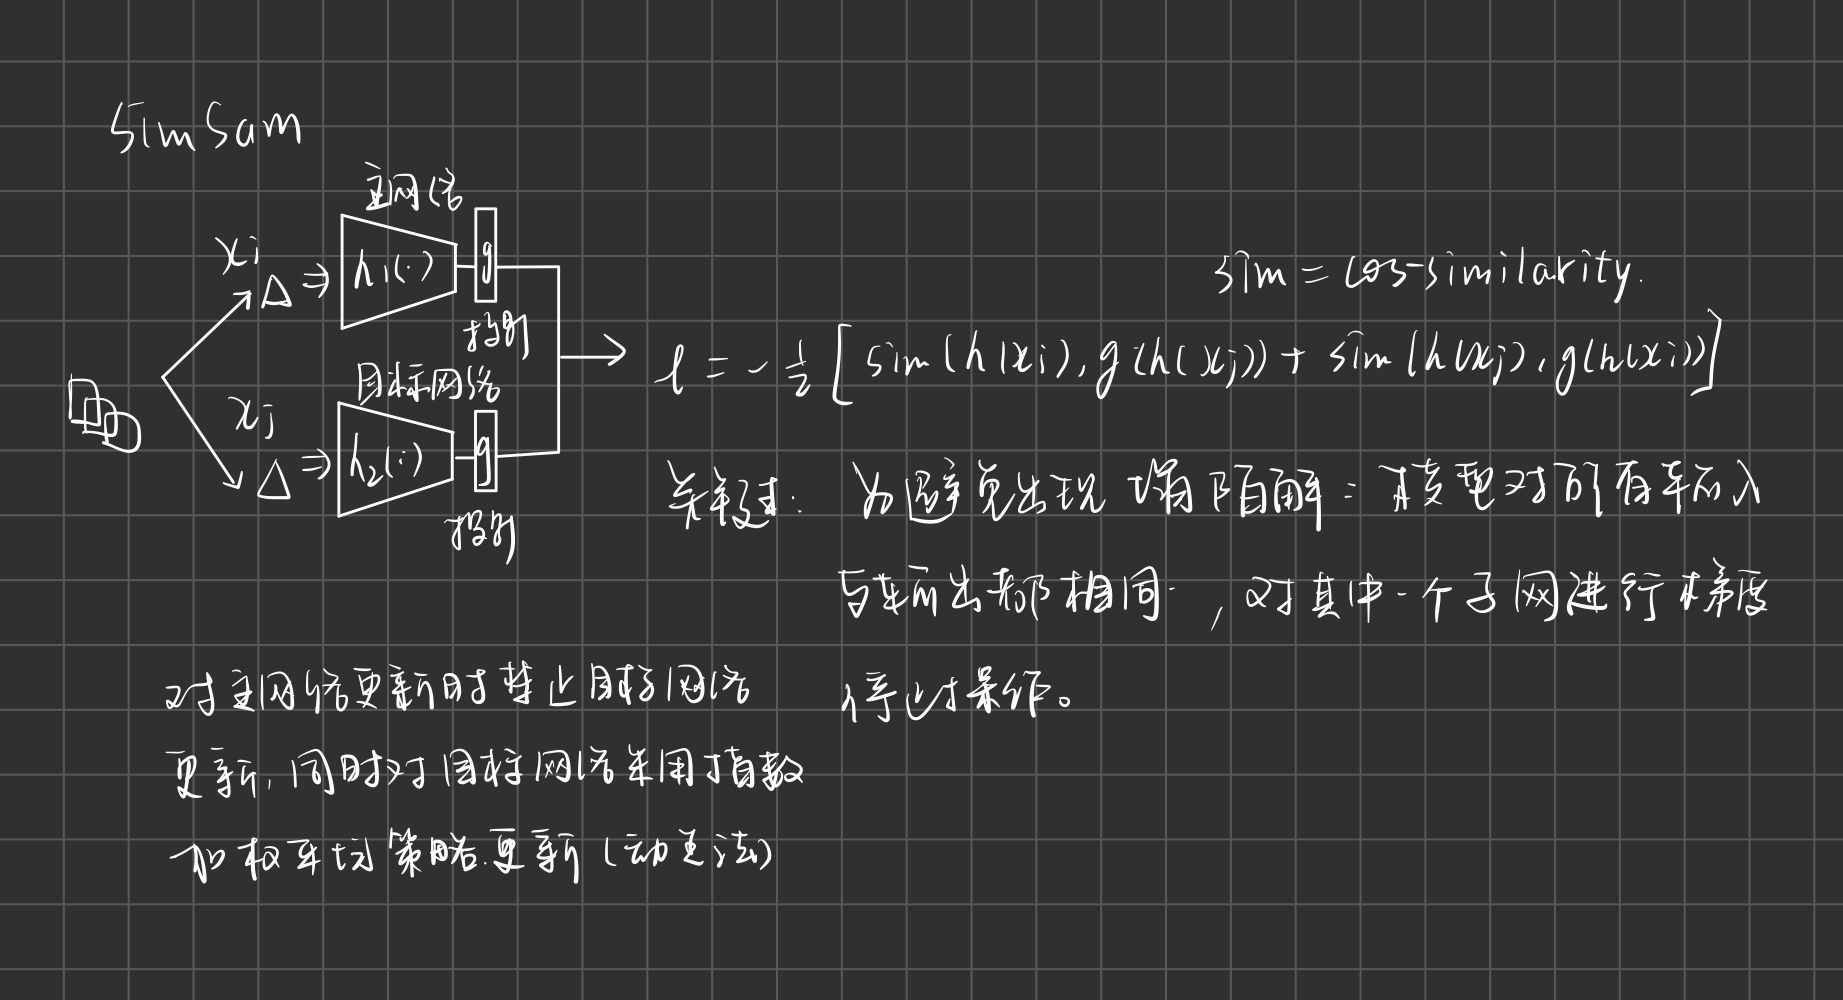 SimSam
主网络
xi
h1(·)
g
投影
目标网络
xj
h2(·)
g
投影
sim = cos-similarity.
ℓ = -1/2 [sim(h(xi), g(h(xj)) + sim(h(xj), g(h(xi))]
关键: 为避免出现塌陷解: 模型对所有输入
与输出都相同, 对其中一个子网进行梯度
停止操作。
对主网络更新时禁止目标网络
更新, 同时对目标网络采用指数
加权平均策略更新(动量法)